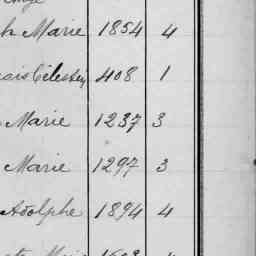 Marie 1854 4
Célestin 408 1
Marie 1237 3
Marie 1297 3
Adolphe 1894 4